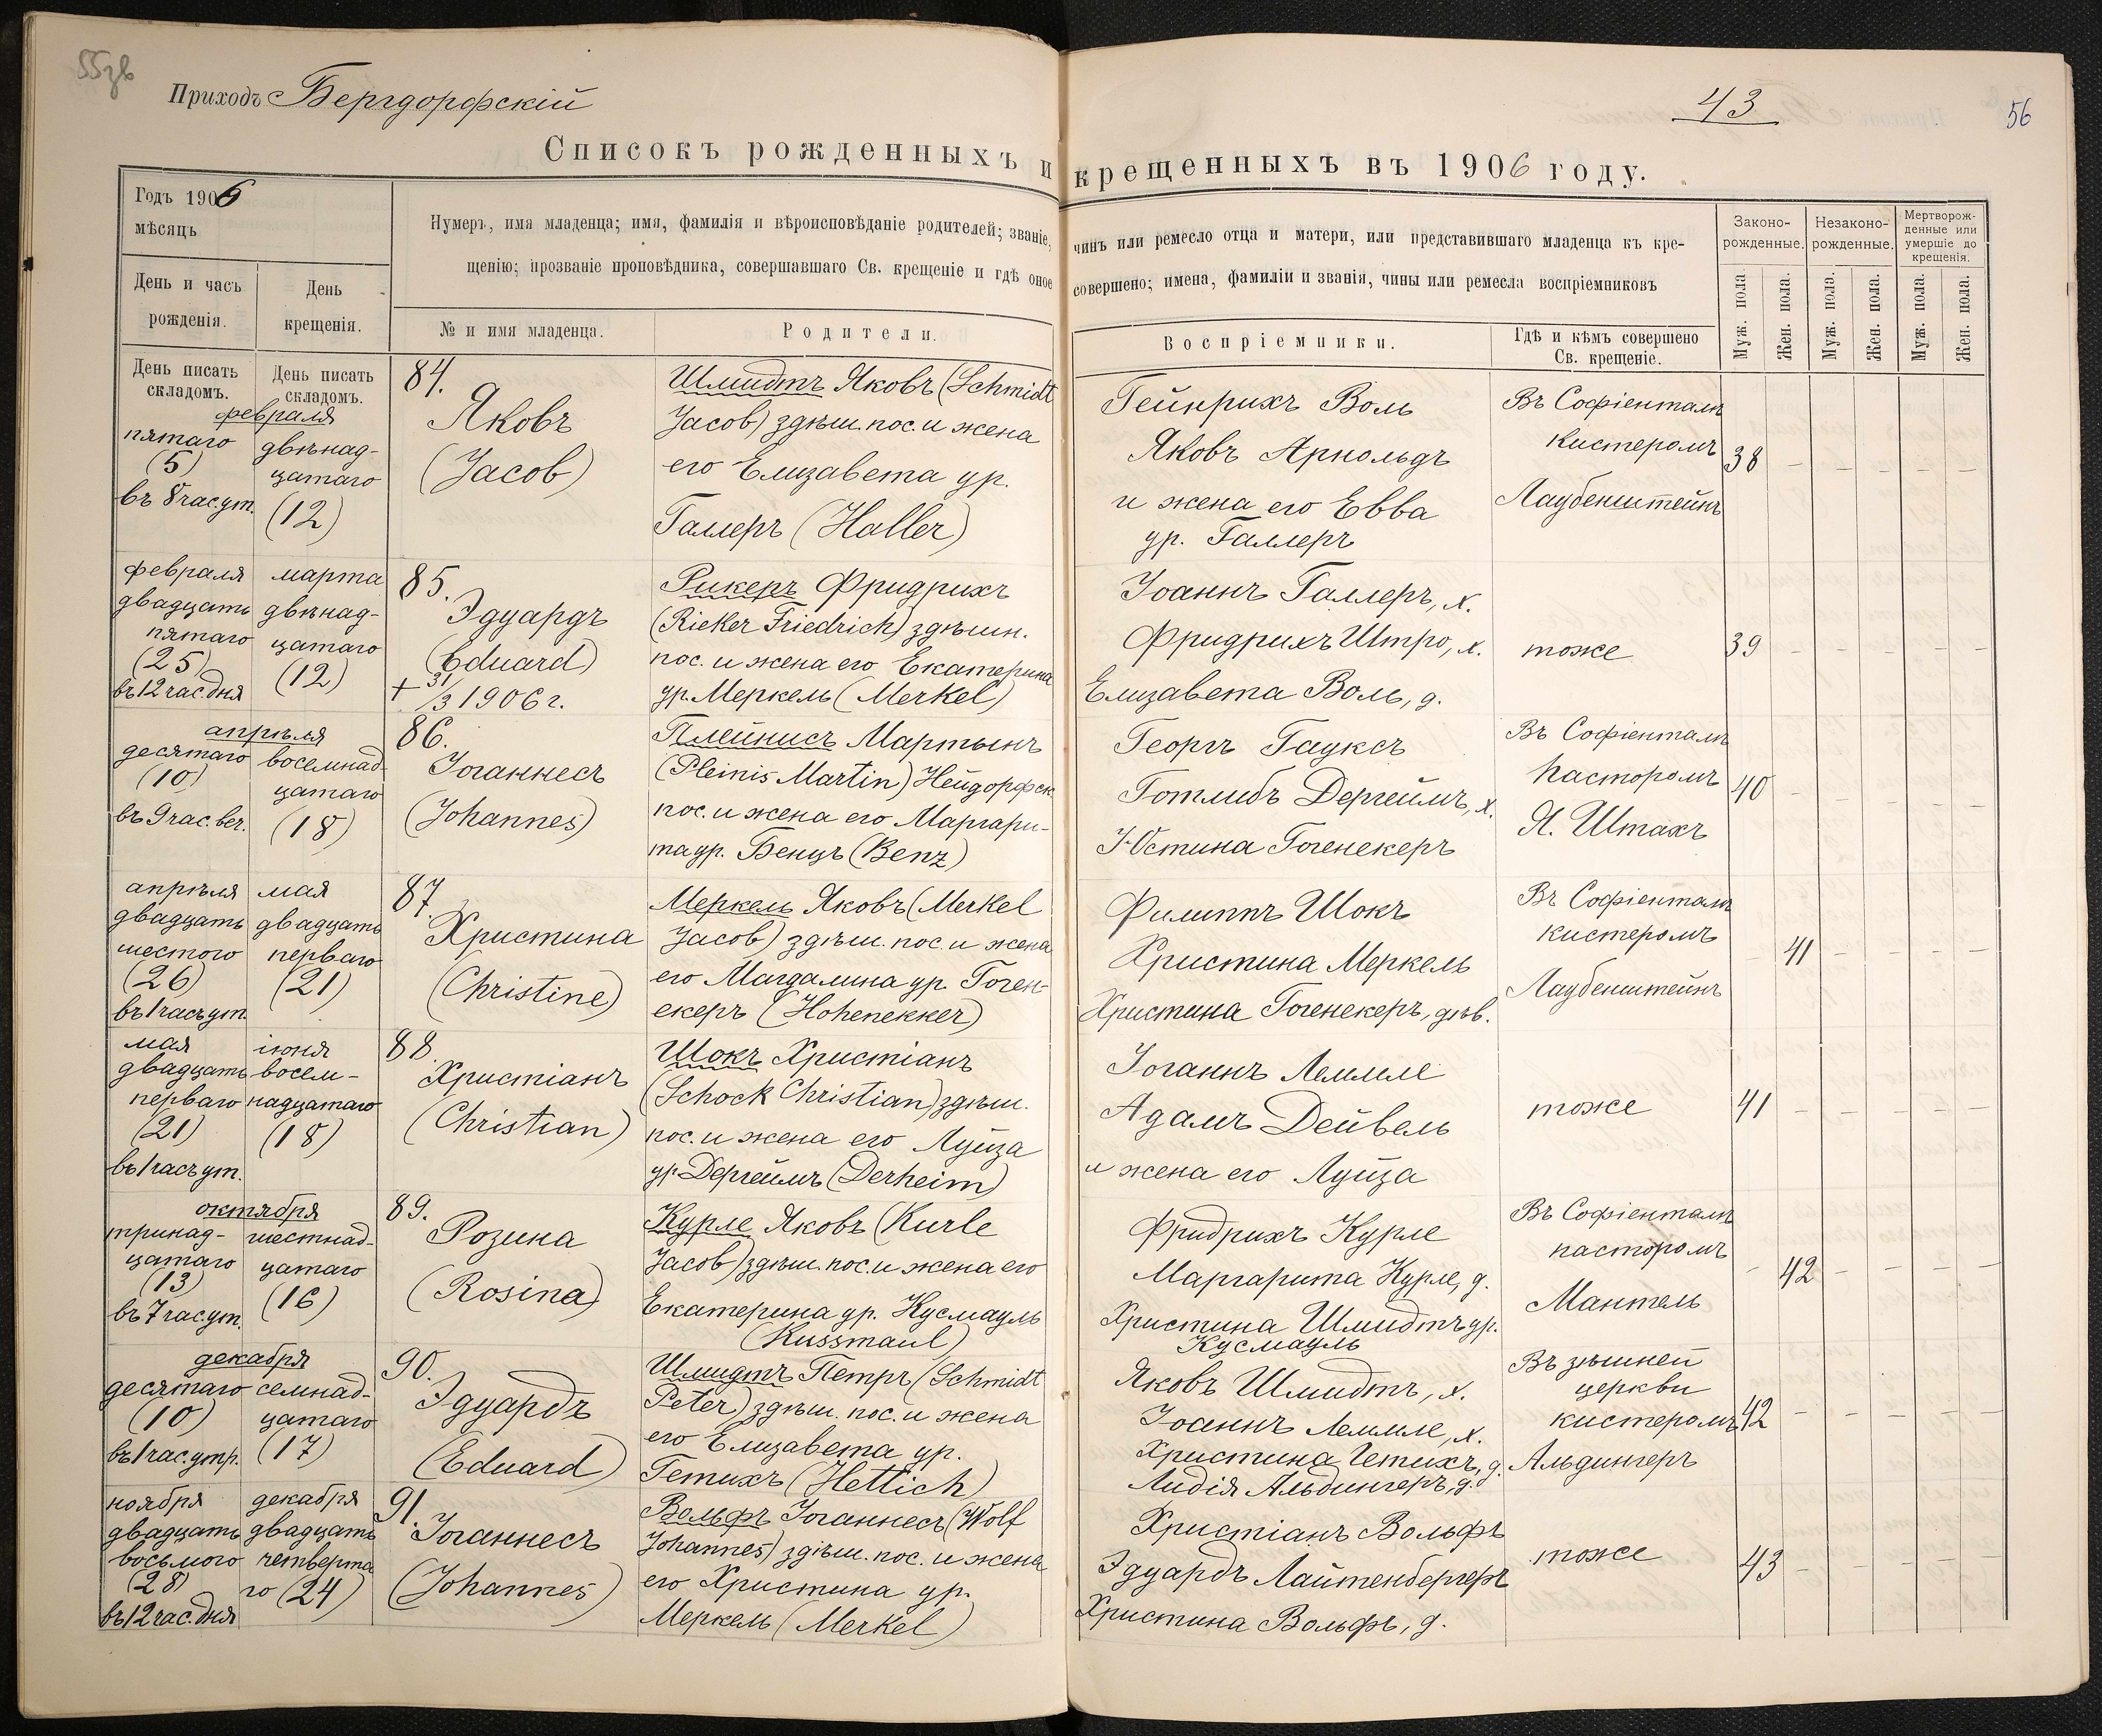 55зв
Приходъ Бергдорфскій
43
56
Списокъ рожденныхъ и крещенныхъ въ 1906 году.
Годъ 1906
мѣсяцъ
День и часъ
рожденія.
День
крещенія.
Нумеръ, имя младенца; имя, фамилія и вѣроисповѣданіе родителей; званіе, чинъ или ремесло отца и матери, или представившаго младенца къ кре-
щенію; прозваніе проповѣдника, совершавшаго Св. крещеніе и гдѣ оное совершено; имена, фамиліи и званія, чины или ремесла воспріемниковъ
№ и имя младенца.
Родители.
Воспріемники.
Гдѣ и кѣмъ совершено
Св. крещеніе.
Законо-
рожденные.
Незаконо-
рожденные.
Мертворож-
денные или
умершіе до
крещенія.
Муж. пола
Жен. пола.
Муж. пола.
Жен. пола.
Муж. пола.
Жен. пола.
День писать
складомъ.
День писать
складомъ.
февраля
пятаго
(5)
въ 8 час. ут.
двѣнад-
цатаго
(12)
84.
Яковъ
(Jacob)
Шмидтъ Яковъ (Schmidt
Jacob) здѣш. пос. и жена
его Елизавета ур.
Галлеръ (Haller)
Гейнрихъ Воль
Яковъ Арнольдъ
и жена его Евва
ур. Галлеръ
Въ Софіенталѣ
кистеромъ
Лаубенштейнъ
38 – – – – –
февраля
двадцать
пятаго
(25)
въ 12 час. дня
марта
двѣнад-
цатаго
(12)
85.
Эдуардъ
(Eduard)
+ 31/3 1906 г.
Рикеръ Фридрихъ
(Rieker Friedrich) здѣшн.
пос. и жена его Екатерина
ур. Меркель (Merkel)
Іоаннъ Галлеръ, х.
Фридрихъ Штро, х.
Елизавета Воль, д.
тоже
39 – – – – –
апрѣля
десятаго
(10)
въ 9 час. веч.
восемнад-
цатаго
(18)
86.
Іоганнесъ
(Johannes)
Плейнисъ Мартынъ
(Pleinis Martin) Нейдорфск
пос. и жена его Маргари-
та ур. Бенцъ (Benz)
Георгъ Гауксъ
Готлибъ Дергеймъ, х.
Юстина Гогенекеръ
Въ Софіенталѣ
пасторомъ
Я. Штахъ
40 – – – – –
апрѣля
двадцать
шестого
(26)
въ 1 часъ ут.
мая
двадцать
перваго
(21)
87.
Христина
(Christine)
Меркель Яковъ (Merkel
Jacob) здѣш. пос. и жена
его Магдалина ур. Гоген-
екеръ (Hohenekker)
Филиппъ Шокъ
Христина Меркель
Христина Гогенекеръ, дѣв.
Въ Софіенталѣ
кистеромъ
Лаубенштейнъ
– 41 – – – –
мая
двадцать
перваго
(21)
въ 1 часъ ут.
іюня
восем-
надцатаго
(18)
88.
Христіанъ
(Christian)
Шокъ Христіанъ
(Schock Christian) здѣш.
пос. и жена его Луиза
ур. Дергеймъ (Derheim)
Іоганнъ Леммле
Адамъ Дейвель
и жена его Луиза
тоже
41 – – – – –
октября
тринад-
цатаго
(13)
въ 7 час. ут.
шестнад-
цатаго
(16)
89.
Розина
(Rosina)
Курле Яковъ (Kurle
Jacob) здѣш. пос. и жена его
Екатерина ур. Кусмауль
(Kussmaul)
Фридрихъ Курле
Маргарита Курле, д.
Христина Шмидтъ ур.
Кусмауль
Въ Софіенталѣ
пасторомъ
Мантель
– 42 – – – –
декабря
десятаго
(10)
въ 1 час. утр.
семнад-
цатаго
(17)
90.
Эдуардъ
(Eduard)
Шмидтъ Петръ (Schmidt
Peter) здѣш. пос. и жена
его Елизавета ур.
Гетихъ (Hettich)
Яковъ Шмидтъ, х.
Іоаннъ Леммле, х.
Христина Гетихъ, д.
Лидія Альдингеръ, д.
Въ зѣшней
церкви
кистеромъ
Альдингеръ
42 – – – – –
ноября
двадцать
восьмого
(28)
въ 12 час. дня
декабря
двадцать
четверта
го (24)
91.
Іоганнесъ
(Johannes)
Вольфъ Іоганнесъ (Wolf
Johannes) здѣш. пос. и жена
его Христина ур.
Меркель (Merkel)
Христіанъ Вольфъ
Эдуардъ Лайтенбергеръ
Христина Вольфъ, д.
тоже
43 – – – – –